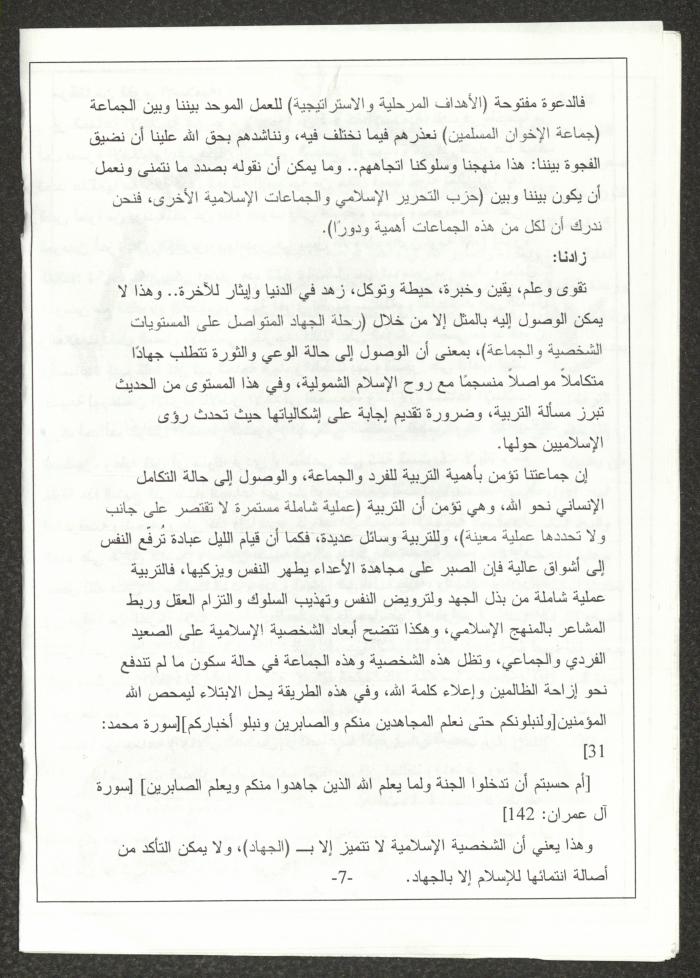 فالدعوة مفتوحة (الأهداف المرحلية والاستراتيجية) للعمل الموحد بيننا وبين الجماعة
(جماعة الإخوان المسلمين) نعذرهم فيما نختلف فيه، ونناشدهم بحق الله علينا أن نضيق
الفجوة بيننا: هذا منهجنا وسلوكنا اتجاههم.. وما يمكن أن نقوله بصدد ما نتمنى ونعمل
أن يكون بيننا وبين (حزب التحرير الإسلامي والجماعات الإسلامية الأخرى، فنحن
ندرك أن لكل من هذه الجماعات أهمية ودورًا).
زادنا:
تقوى وعلم، يقين وخبرة، حيطة وتوكل، زهد في الدنيا وإيثار للآخرة.. وهذا لا
يمكن الوصول إليه بالمثل إلا من خلال (رحلة الجهاد المتواصل على المستويات
الشخصية والجماعة)، بمعنى أن الوصول إلى حالة الوعي والثورة تتطلب جهادًا
متكاملاً مواصلاً منسجمًا مع روح الإسلام الشمولية، وفي هذا المستوى من الحديث
تبرز مسألة التربية، وضرورة تقديم إجابة على إشكالياتها حيث تحدث رؤى
الإسلاميين حولها.
إن جماعتنا تؤمن بأهمية التربية للفرد والجماعة، والوصول إلى حالة التكامل
الإنساني نحو الله، وهي تؤمن أن التربية (عملية شاملة مستمرة لا تقتصر على جانب
ولا تحددها عملية معينة)، وللتربية وسائل عديدة، فكما أن قيام الليل عبادة تُرفّع النفس
إلى أشواق عالية فإن الصبر على مجاهدة الأعداء يطهر النفس ويزكيها، فالتربية
عملية شاملة من بذل الجهد ولترويض النفس وتهذيب السلوك والتزام العقل وربط
المشاعر بالمنهج الإسلامي، وهكذا تتضح أبعاد الشخصية الإسلامية على الصعيد
الفردي والجماعي، وتظل هذه الشخصية وهذه الجماعة في حالة سكون ما لم تندفع
نحو إزاحة الظالمين وإعلاء كلمة الله، وفي هذه الطريقة يحل الابتلاء ليمحص الله
المؤمنين[ولنبلونكم حتى نعلم المجاهدين منكم والصابرين ونبلو أخباركم][سورة محمد:
31]
[أم حسبتم أن تدخلوا الجنة ولما يعلم الله الذين جاهدوا منكم ويعلم الصابرين] [سورة
آل عمران: 142]
وهذا يعني أن الشخصية الإسلامية لا تتميز إلا بــ (الجهاد)، ولا يمكن التأكد من
أصالة انتمائها للإسلام إلا بالجهاد.
-7-